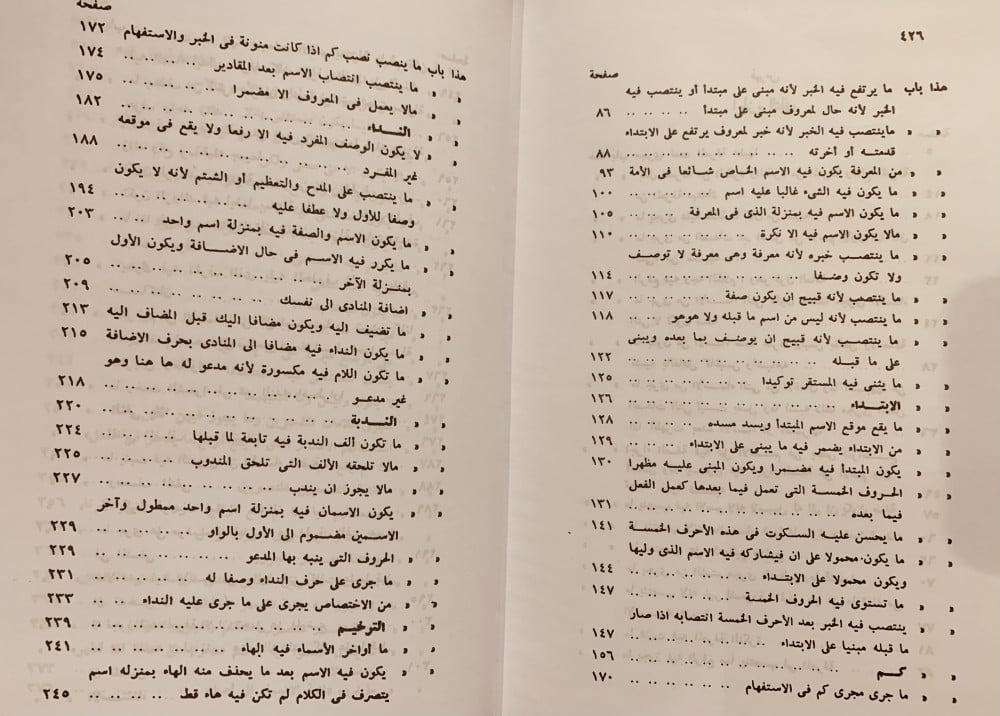 ٤٢٦
صفحة
هذا باب ما يرتفع فيه الخبر لأنه مبنى على مبتدأ أو ينتصب فيه
الخبر لأنه حال لمعروف مبنى على مبتدأ .. .. .. .. ٨٦
« « ماينتصب فيه الخبر لأنه خبر لمعروف يرتفع على الابتداء
قدمته أو أخرته .. .. .. .. .. .. .. .. ٨٨
« « من المعرفة يكون فيه الاسم الخاص شائعا فى الأمة ٩٣
« « ما يكون فيه الشىء غالبا عليه اسم .. .. .. .. ١٠٠
« « ما يكون الاسم فيه بمنزلة الذى فى المعرفة .. .. .. ١٠٥
« « مالا يكون الاسم فيه الا نكرة .. .. .. .. .. ١١٠
« « ما ينتصب خبره لأنه معرفة وهى معرفة لا توصف
ولا تكون وصفا .. .. .. .. .. .. .. .. ١١٤
« « ما ينتصب لأنه قبيح ان يكون صفة .. .. .. .. ١١٧
« « ما ينتصب لأنه ليس من اسم ما قبله ولا هوهو .. .. ١١٨
« « ما ينتصب لأنه قبيح ان يوصف بما بعده ويبنى
على ما قبله .. .. .. .. .. .. .. .. ١٢٢
« « ما يثنى فيه المستقر توكيدا .. .. .. .. .. .. ١٢٥
« « الابتداء .. .. .. .. .. .. .. .. .. ١٢٦
« « ما يقع موقع الاسم المبتدأ ويسد مسده .. .. .. ١٢٨
« « من الابتداء يضمر فيه ما يبنى على الابتداء .. .. .. ١٢٩
« « يكون المبتدأ فيه مضمرا ويكون المبنى عليه مظهرا ١٣٠
« « الحروف الخمسة التى تعمل فيما بعدها كعمل الفعل
فيما بعده .. .. .. .. .. .. .. .. ١٣١
« « ما يحسن عليه السكوت فى هذه الأحرف الخمسة ١٤١
« « ما يكون محمولا على ان فيشاركه فيه الاسم الذى وليها
ويكون محمولا على الابتداء .. .. .. .. .. .. ١٤٤
« « ما تستوى فيه الحروف الخمسة .. .. .. .. .. ١٤٧
« « ينتصب فيه الخبر بعد الأحرف الخمسة انتصابه اذا صار
ما قبله مبنيا على الابتداء .. .. .. .. .. .. ١٤٧
« « كم .. .. .. .. .. .. .. .. .. ١٥٦
« « ما جرى مجرى كم فى الاستفهام .. .. .. .. .. ١٧٠
صفحة
هذا باب ما ينصب نصب كم اذا كانت منونة فى الخبر والاستفهام ١٧٢
« « ما ينتصب انتصاب الاسم بعد المقادير .. .. .. .. ١٧٤
« « مالا يعمل فى المعروف الا مضمرا .. .. .. .. .. ١٧٥
« « النداء .. .. .. .. .. .. .. .. .. ١٨٢
« « لا يكون الوصف المفرد فيه الا رفعا ولا يقع فى موقعه
غير المفرد .. .. .. .. .. .. .. .. ١٨٨
« « ما ينتصب على المدح والتعظيم أو الشتم لأنه لا يكون
وصفا للأول ولا عطفا عليه .. .. .. .. .. .. ١٩٤
« « ما يكون الاسم والصفة فيه بمنزلة اسم واحد .. .. ٢٠٣
« « ما يكرر فيه الاسم فى حال الاضافة ويكون الأول
بمنزلة الآخر .. .. .. .. .. .. .. .. ٢٠٥
« « اضافة المنادى الى نفسك .. .. .. .. .. .. ٢٠٩
« « ما تضيف اليه ويكون مضافا اليك قبل المضاف اليه ٢١٣
« « ما يكون النداء فيه مضافا الى المنادى بحرف الاضافة ٢١٥
« « ما تكون اللام فيه مكسورة لأنه مدعو له ها هنا وهو
غير مدعو .. .. .. .. .. .. .. .. ٢١٨
« « الندبة .. .. .. .. .. .. .. .. .. ٢٢٠
« « ما تكون ألف الندبة فيه تابعة لما قبلها .. .. .. .. ٢٢٤
« « مالا تلحقه الألف التى تلحق المندوب .. .. .. .. ٢٢٥
« « مالا يجوز ان يندب .. .. .. .. .. .. .. ٢٢٧
« « يكون الاسمان فيه بمنزلة اسم واحد ممطول وآخر
الاسمين مضموم الى الأول بالواو .. .. .. .. .. ٢٢٩
« « الحروف التى ينبه بها المدعو .. .. .. .. .. ٢٢٩
« « ما جرى على حرف النداء وصفا له .. .. .. .. ٢٣١
« « من الاختصاص يجرى على ما جرى عليه النداء .. .. ٢٣٣
« « الترخيم .. .. .. .. .. .. .. .. .. ٢٣٩
« « ما أواخر الأسماء فيه الهاء .. .. .. .. .. .. ٢٤١
« « يكون فيه الاسم بعد ما يحذف منه الهاء بمنزلة اسم
يتصرف فى الكلام لم تكن فيه هاء قط .. .. .. .. ٢٤٥